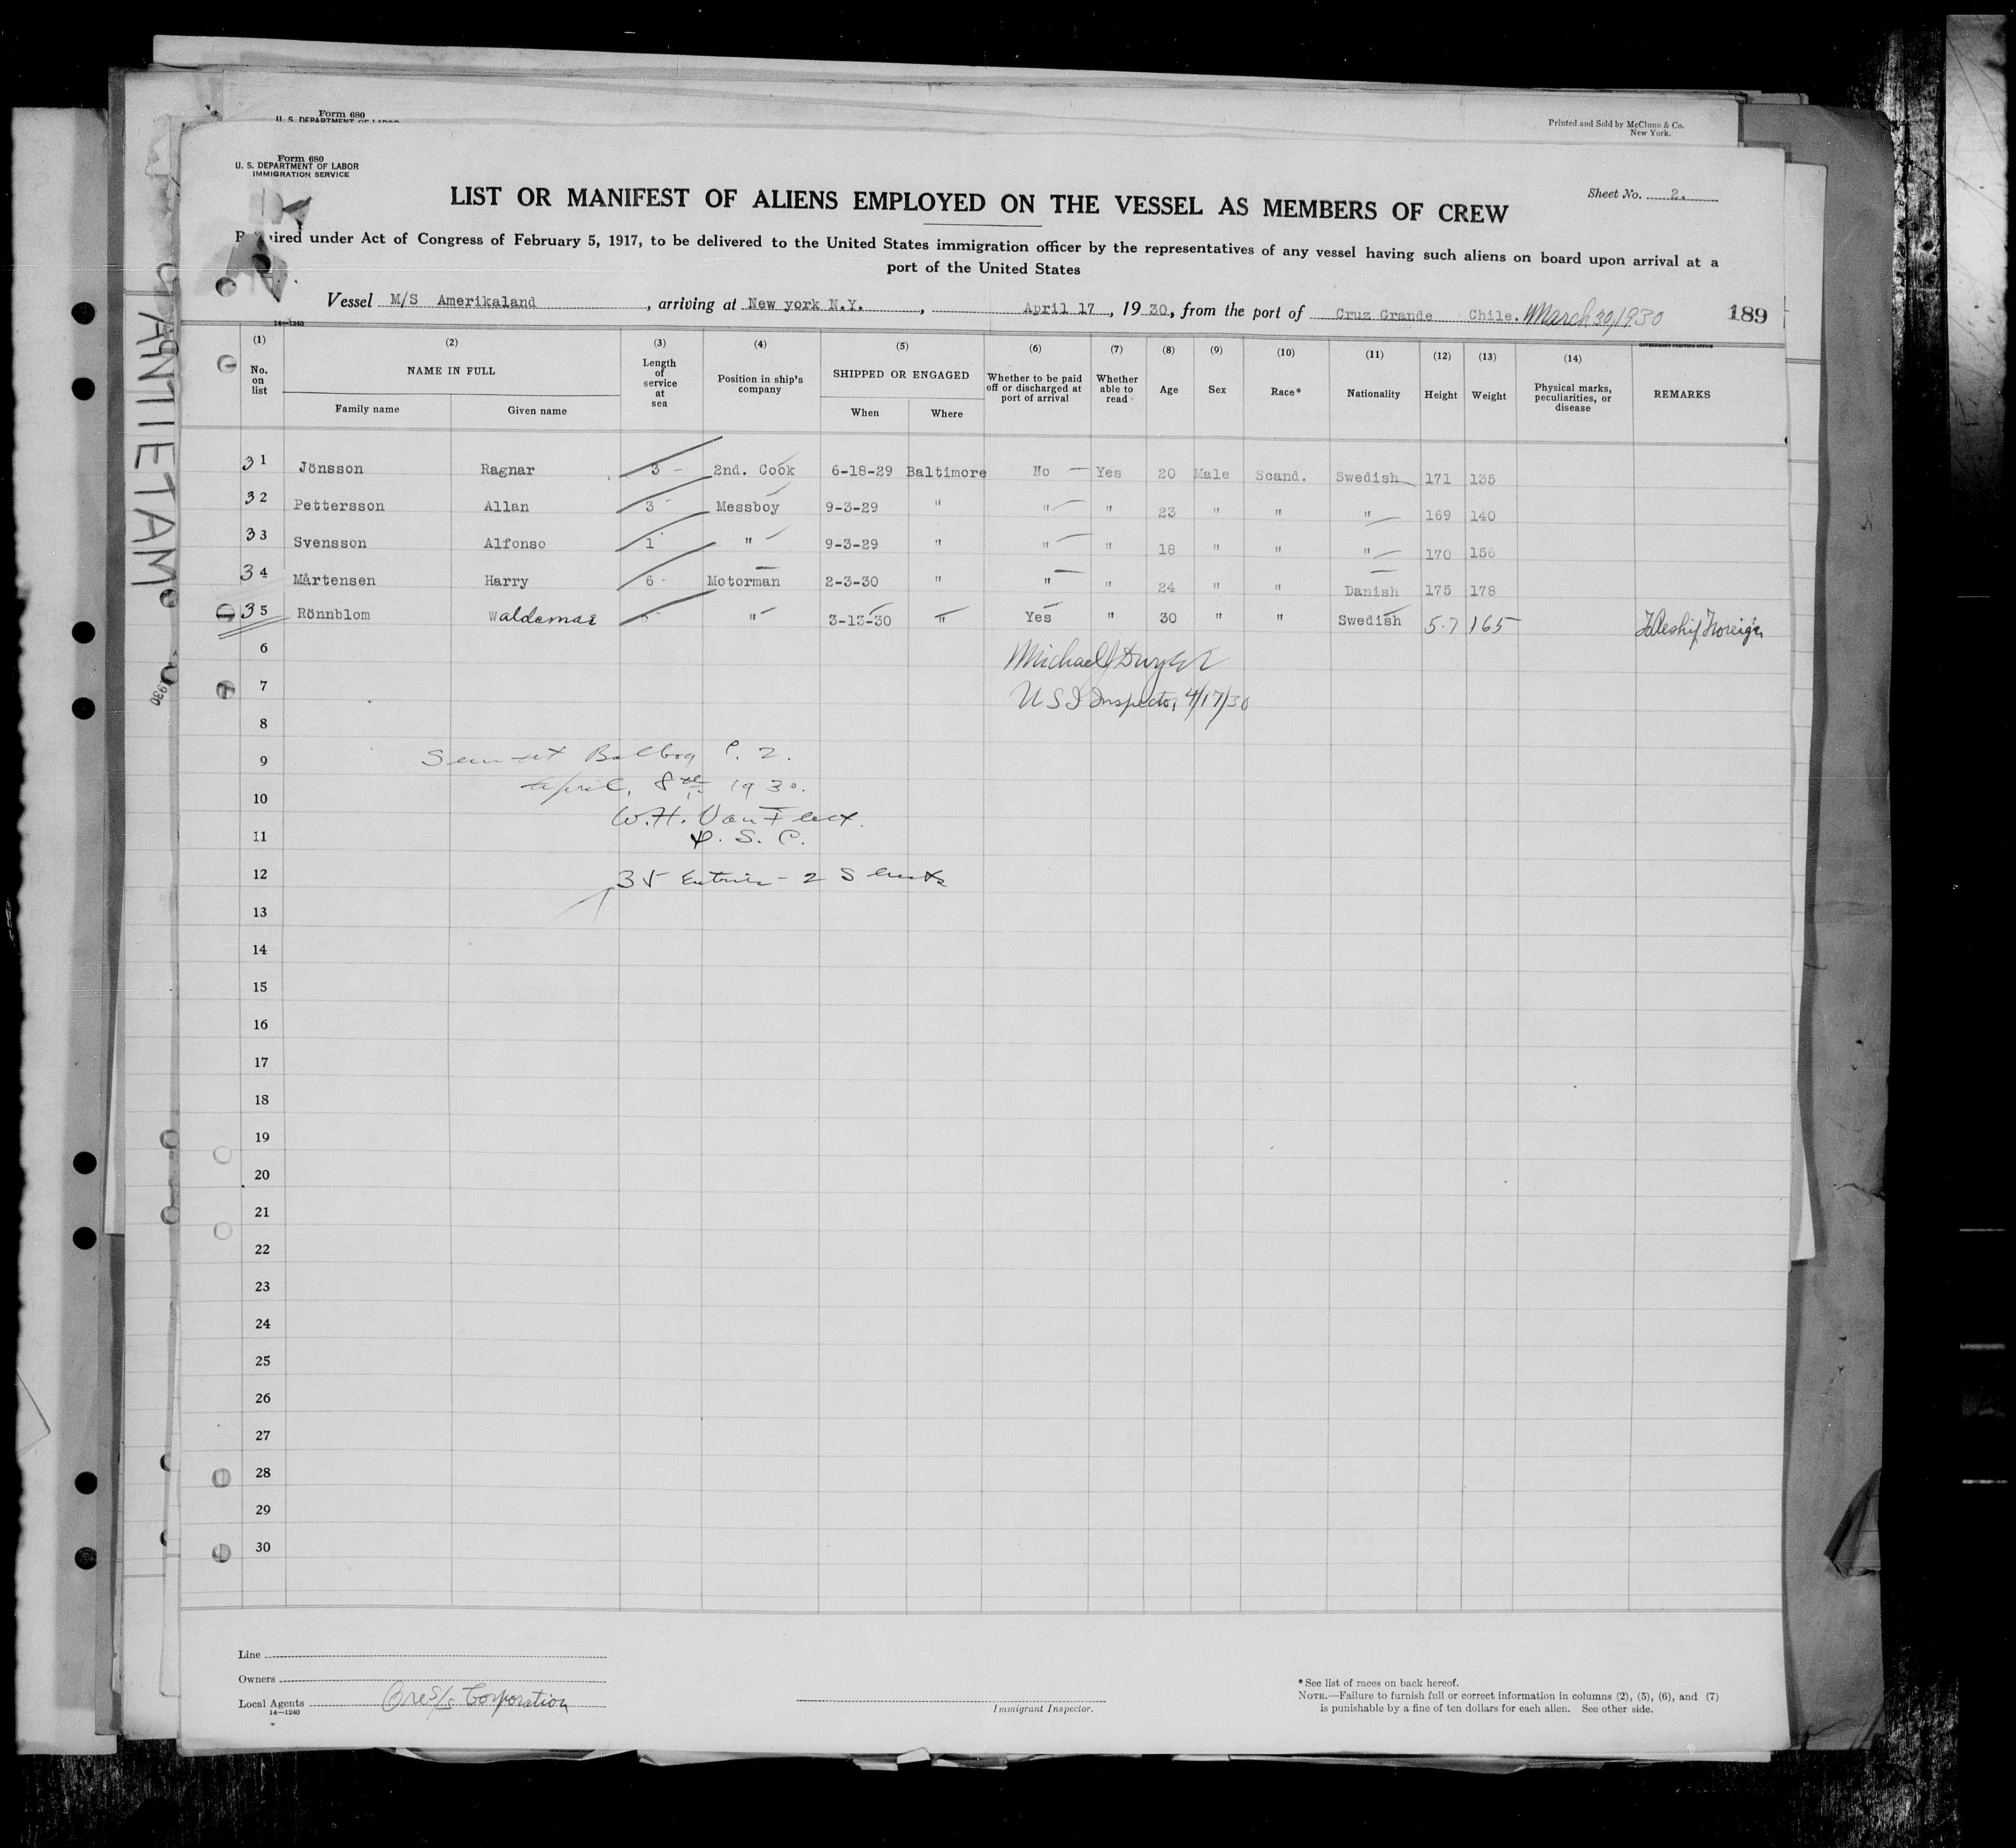 Form 680
U. S. DEPARTMENT OF LABOR
Printed and Sold by McClunn & Co.
New York.
Form 680
U. S. DEPARTMENT OF LABOR
IMMIGRATION SERVICE
Sheet No. 2.
LIST OR MANIFEST OF ALIENS EMPLOYED ON THE VESSEL AS MEMBERS OF CREW
Required under Act of Congress of February 5, 1917, to be delivered to the United States immigration officer by the representatives of any vessel having such aliens on board upon arrival at a
port of the United States
Vessel M/S Amerikaland, arriving at New york N.Y., April 17, 1930, from the port of Cruz Grande Chile. March 30/1930 189
14—1240
GOVERNMENT PRINTING OFFICE
(1) (2) (3) (4) (5) (6) (7) (8) (9) (10) (11) (12) (13) (14)
No. on list NAME IN FULL Length of service at sea Position in ship's company SHIPPED OR ENGAGED Whether to be paid off or discharged at port of arrival Whether able to read Age Sex Race* Nationality Height Weight Physical marks, peculiarities, or disease REMARKS
Family name Given name When Where
31 Jönsson Ragnar 3 - 2nd. Cook 6-18-29 Baltimore No Yes 20 Male Scand. Swedish 171 135
32 Pettersson Allan 3 - Messboy 9-3-29 " " " 23 " " " 169 140
33 Svensson Alfonso 1 " 9-3-29 " " " 18 " " " 170 156
34 Mårtensen Harry 6 - Motorman 2-3-30 " " " 24 " " Danish 175 178
35 Rönnblom Waldemar " 3-13-30 " Yes " 30 " " Swedish 5.7 165 Foreign
6
7
8
9
10
11
12
13
14
15
16
17
18
19
20
21
22
23
24
25
26
27
28
29
30
Michael J Dwyer
U S I Inspector 4/17/30
Balboa C. Z.
April, 8th 1930.
W.H. Van Fleet.
35 Entries - 2 Sheets
Line
Owners
Local Agents Ore S/S Corporation
14—1240
Immigrant Inspector.
*See list of races on back hereof.
NOTE.—Failure to furnish full or correct information in columns (2), (5), (6), and (7)
is punishable by a fine of ten dollars for each alien. See other side.
ANTIETAM
1930